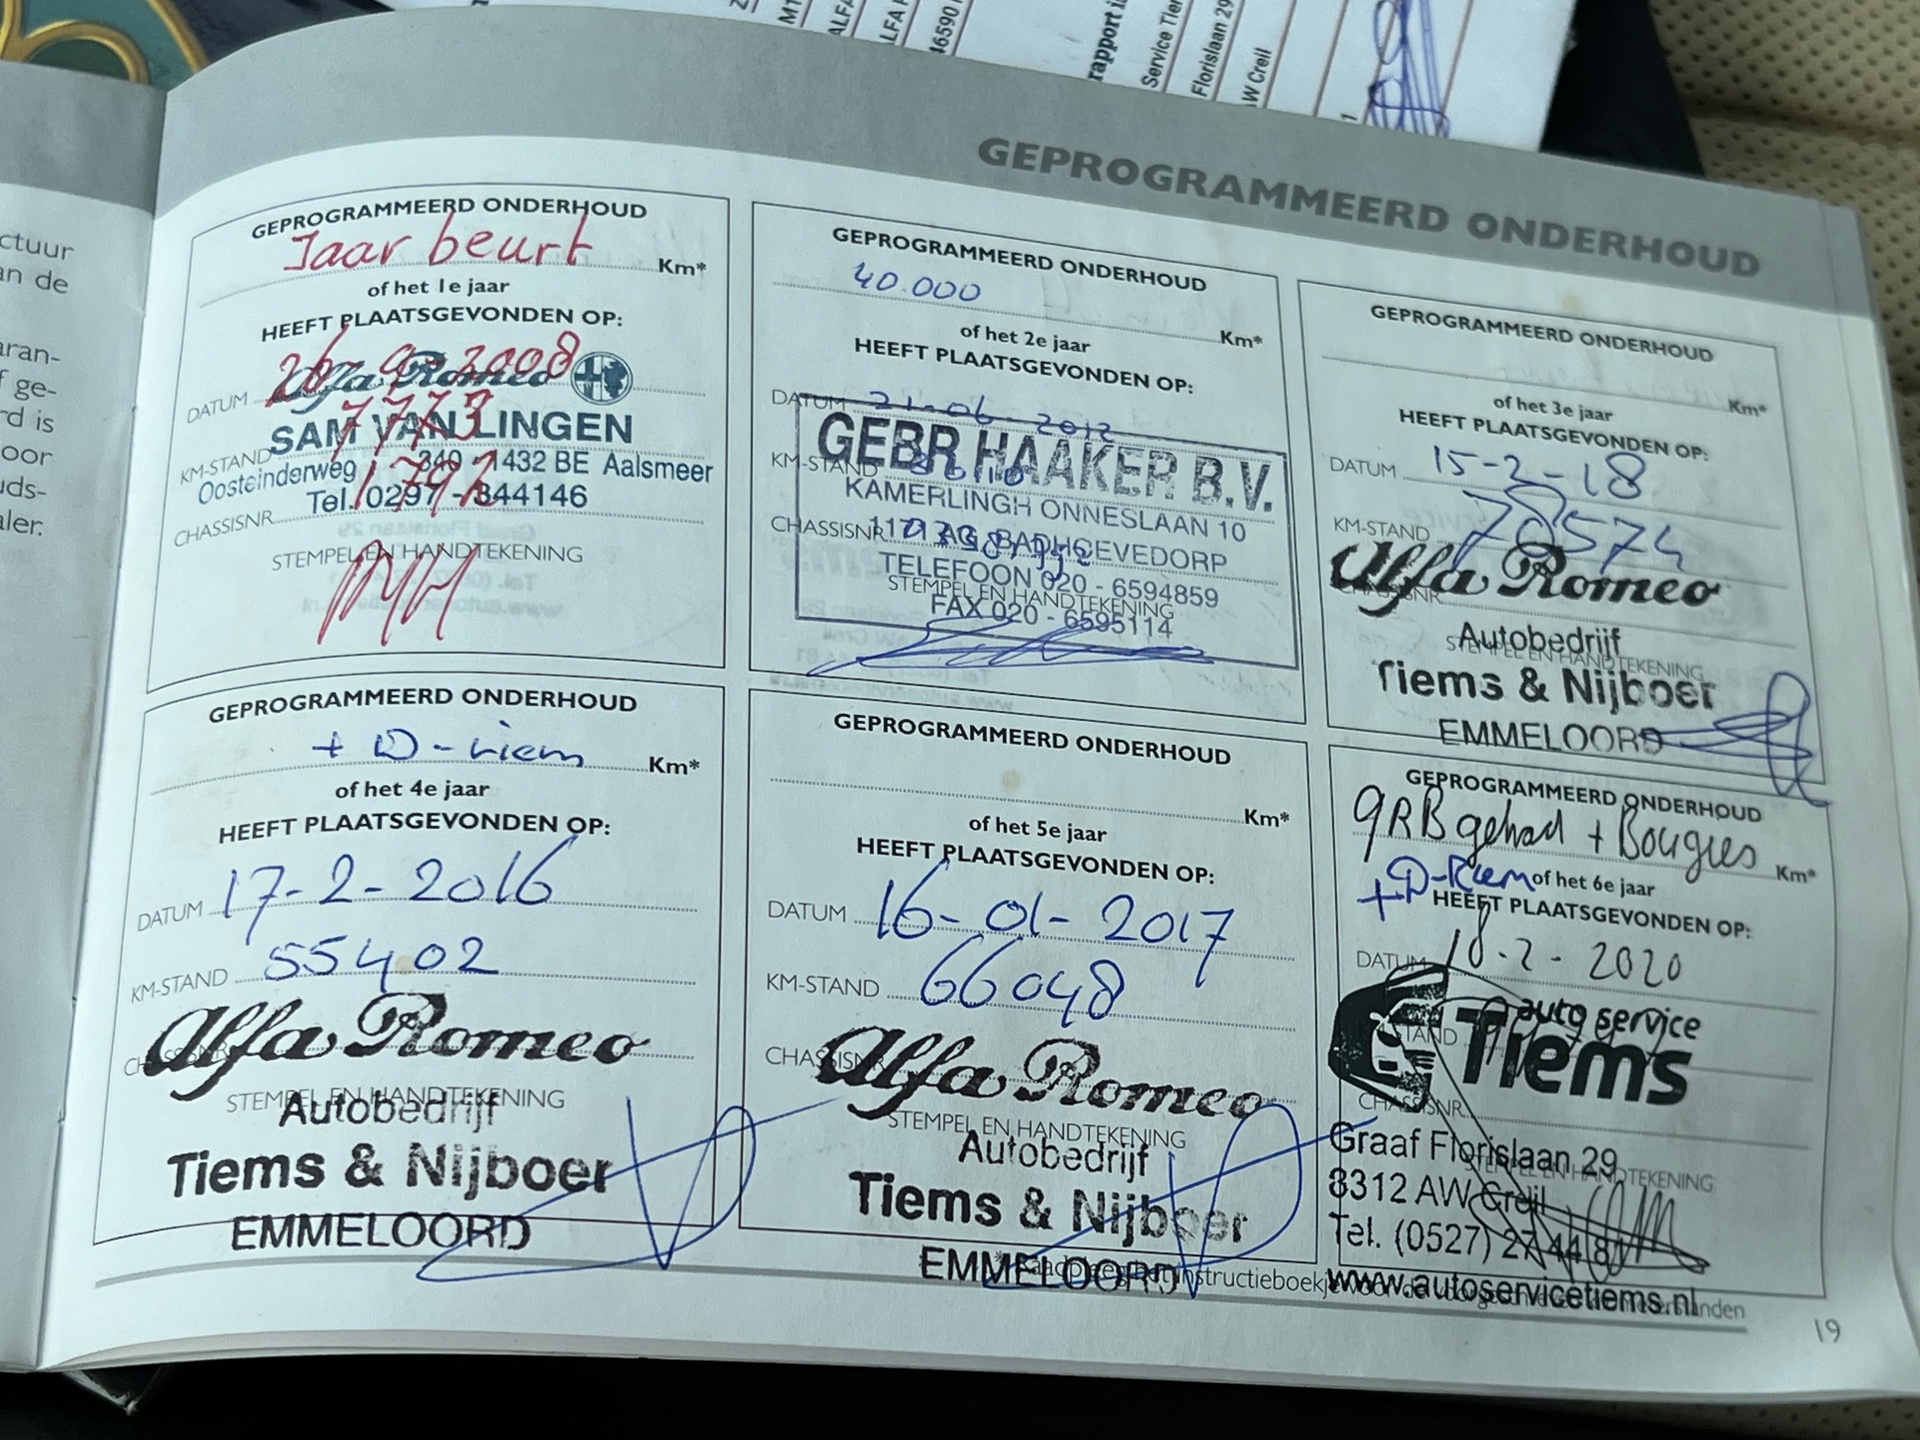 GEPROGRAMMEERD ONDERHOUD
ctuur
an de
aran-
f ge-
rd is
oor
uds-
aler.
46590
rapport i
Service Tier
Florislaan 29
W Creil
GEPROGRAMMEERD ONDERHOUD
Jaar beurt Km*
of het 1e jaar
HEEFT PLAATSGEVONDEN OP:
DATUM 26-9-2008
Alfa Romeo
7773
SAM VAN LINGEN
KM-STAND
Oosteinderweg 340 - 1432 BE Aalsmeer
Tel. 0297 - 344146
CHASSISNR.
STEMPEL EN HANDTEKENING
GEPROGRAMMEERD ONDERHOUD
40.000 Km*
of het 2e jaar
HEEFT PLAATSGEVONDEN OP:
DATUM 21-06-2012
GEBR HAAKER B.V.
KM-STAND
KAMERLINGH ONNESLAAN 10
CHASSISNR.
1171 AG BADHOEVEDORP
TELEFOON 020 - 6594859
STEMPEL EN HANDTEKENING
FAX 020 - 6595114
GEPROGRAMMEERD ONDERHOUD
Km*
of het 3e jaar
HEEFT PLAATSGEVONDEN OP:
DATUM 15-2-18
KM-STAND 70574
Alfa Romeo
CHASSISNR.
Autobedrijf
STEMPEL EN HANDTEKENING
Tiems & Nijboer
EMMELOORD
GEPROGRAMMEERD ONDERHOUD
+ D-riem Km*
of het 4e jaar
HEEFT PLAATSGEVONDEN OP:
DATUM 17-2-2016
KM-STAND 55402
Alfa Romeo
CHASSISNR.
STEMPEL EN HANDTEKENING
Autobedrijf
Tiems & Nijboer
EMMELOORD
GEPROGRAMMEERD ONDERHOUD
Km*
of het 5e jaar
HEEFT PLAATSGEVONDEN OP:
DATUM 16-01-2017
KM-STAND 66048
Alfa Romeo
CHASSISNR.
STEMPEL EN HANDTEKENING
Autobedrijf
Tiems & Nijboer
EMMELOORD
GEPROGRAMMEERD ONDERHOUD
GRB gehad + Bougies Km*
+ D-Riem of het 6e jaar
HEEFT PLAATSGEVONDEN OP:
DATUM 18-2-2020
auto service
STAND
Tiems
CHASSISNR.
Graaf Florislaan 29
STEMPEL EN HANDTEKENING
8312 AW Creil
Tel. (0527) 27 44 81
www.autoservicetiems.nl
19